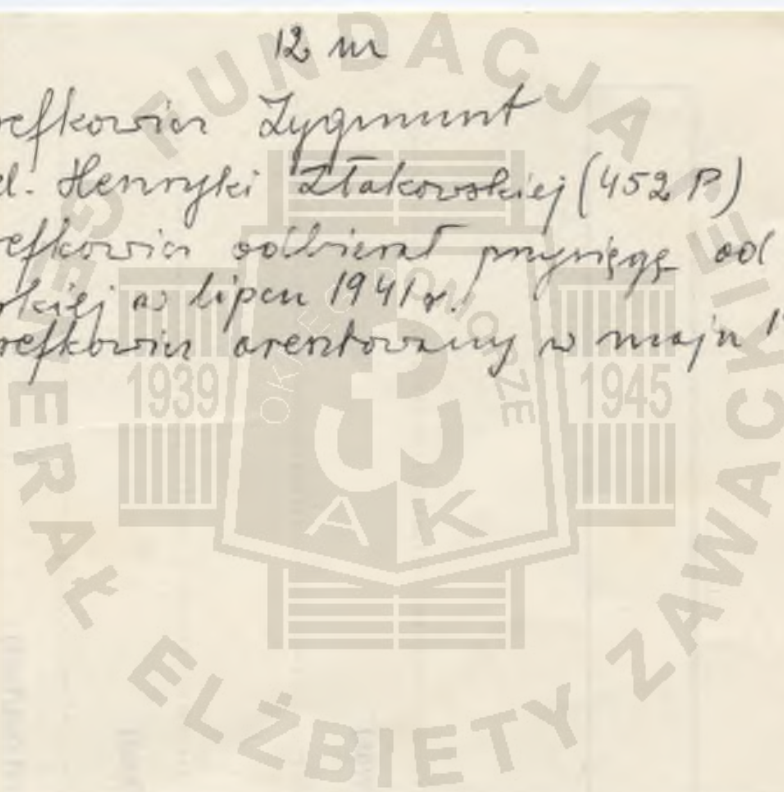 12 m
refkowicz Zygmunt
d. Henryki Złakowskiej (452 P)
refkowicz odbierał przysięgę od
skiej w lipcu 1941 r.
refkowicz aresztowany w maju 1
FUNDACJA GENERAŁ ELŻBIETY ZAWACKIEJ
OKRĘG POMORZE
1939
1945
AK